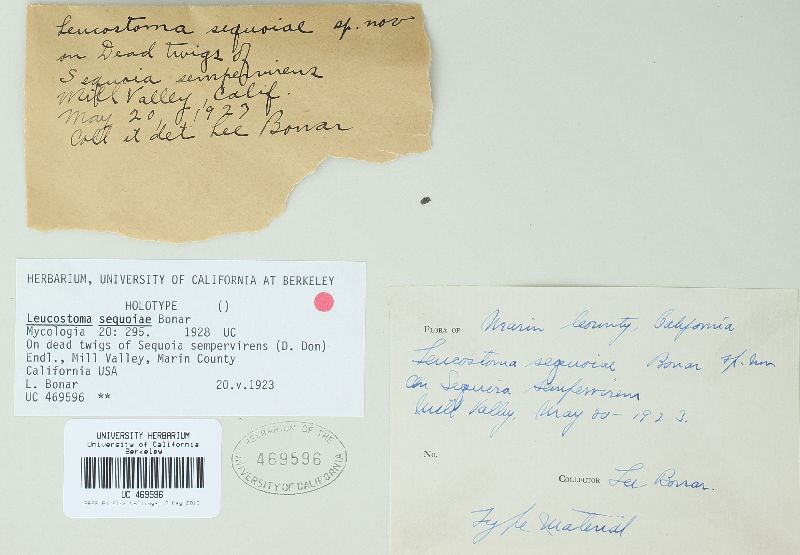 Leucostoma sequoiae sp. nov
on Dead twigs of
Sequoia sempervirens
Mill Valley, Calif.
May 20, 1923
Coll et det Lee Bonar
HERBARIUM, UNIVERSITY OF CALIFORNIA AT BERKELEY
HOLOTYPE ()
Leucostoma sequoiae Bonar
Mycologia 20: 295. 1928 UC
On dead twigs of Sequoia sempervirens (D. Don)
Endl., Mill Valley, Marin County
California USA
L. Bonar 20.v.1923
UC 469596 **
UNIVERSITY HERBARIUM
University of California
Berkeley
UC 469596
HERBARIUM OF THE
469596
UNIVERSITY OF CALIFORNIA
FLORA OF Marin County, California
Leucostoma sequoiae Bonar sp. nov
on Sequoia sempervirens
Mill Valley, May 20 - 1923.
No.
COLLECTOR Lee Bonar.
Type Material